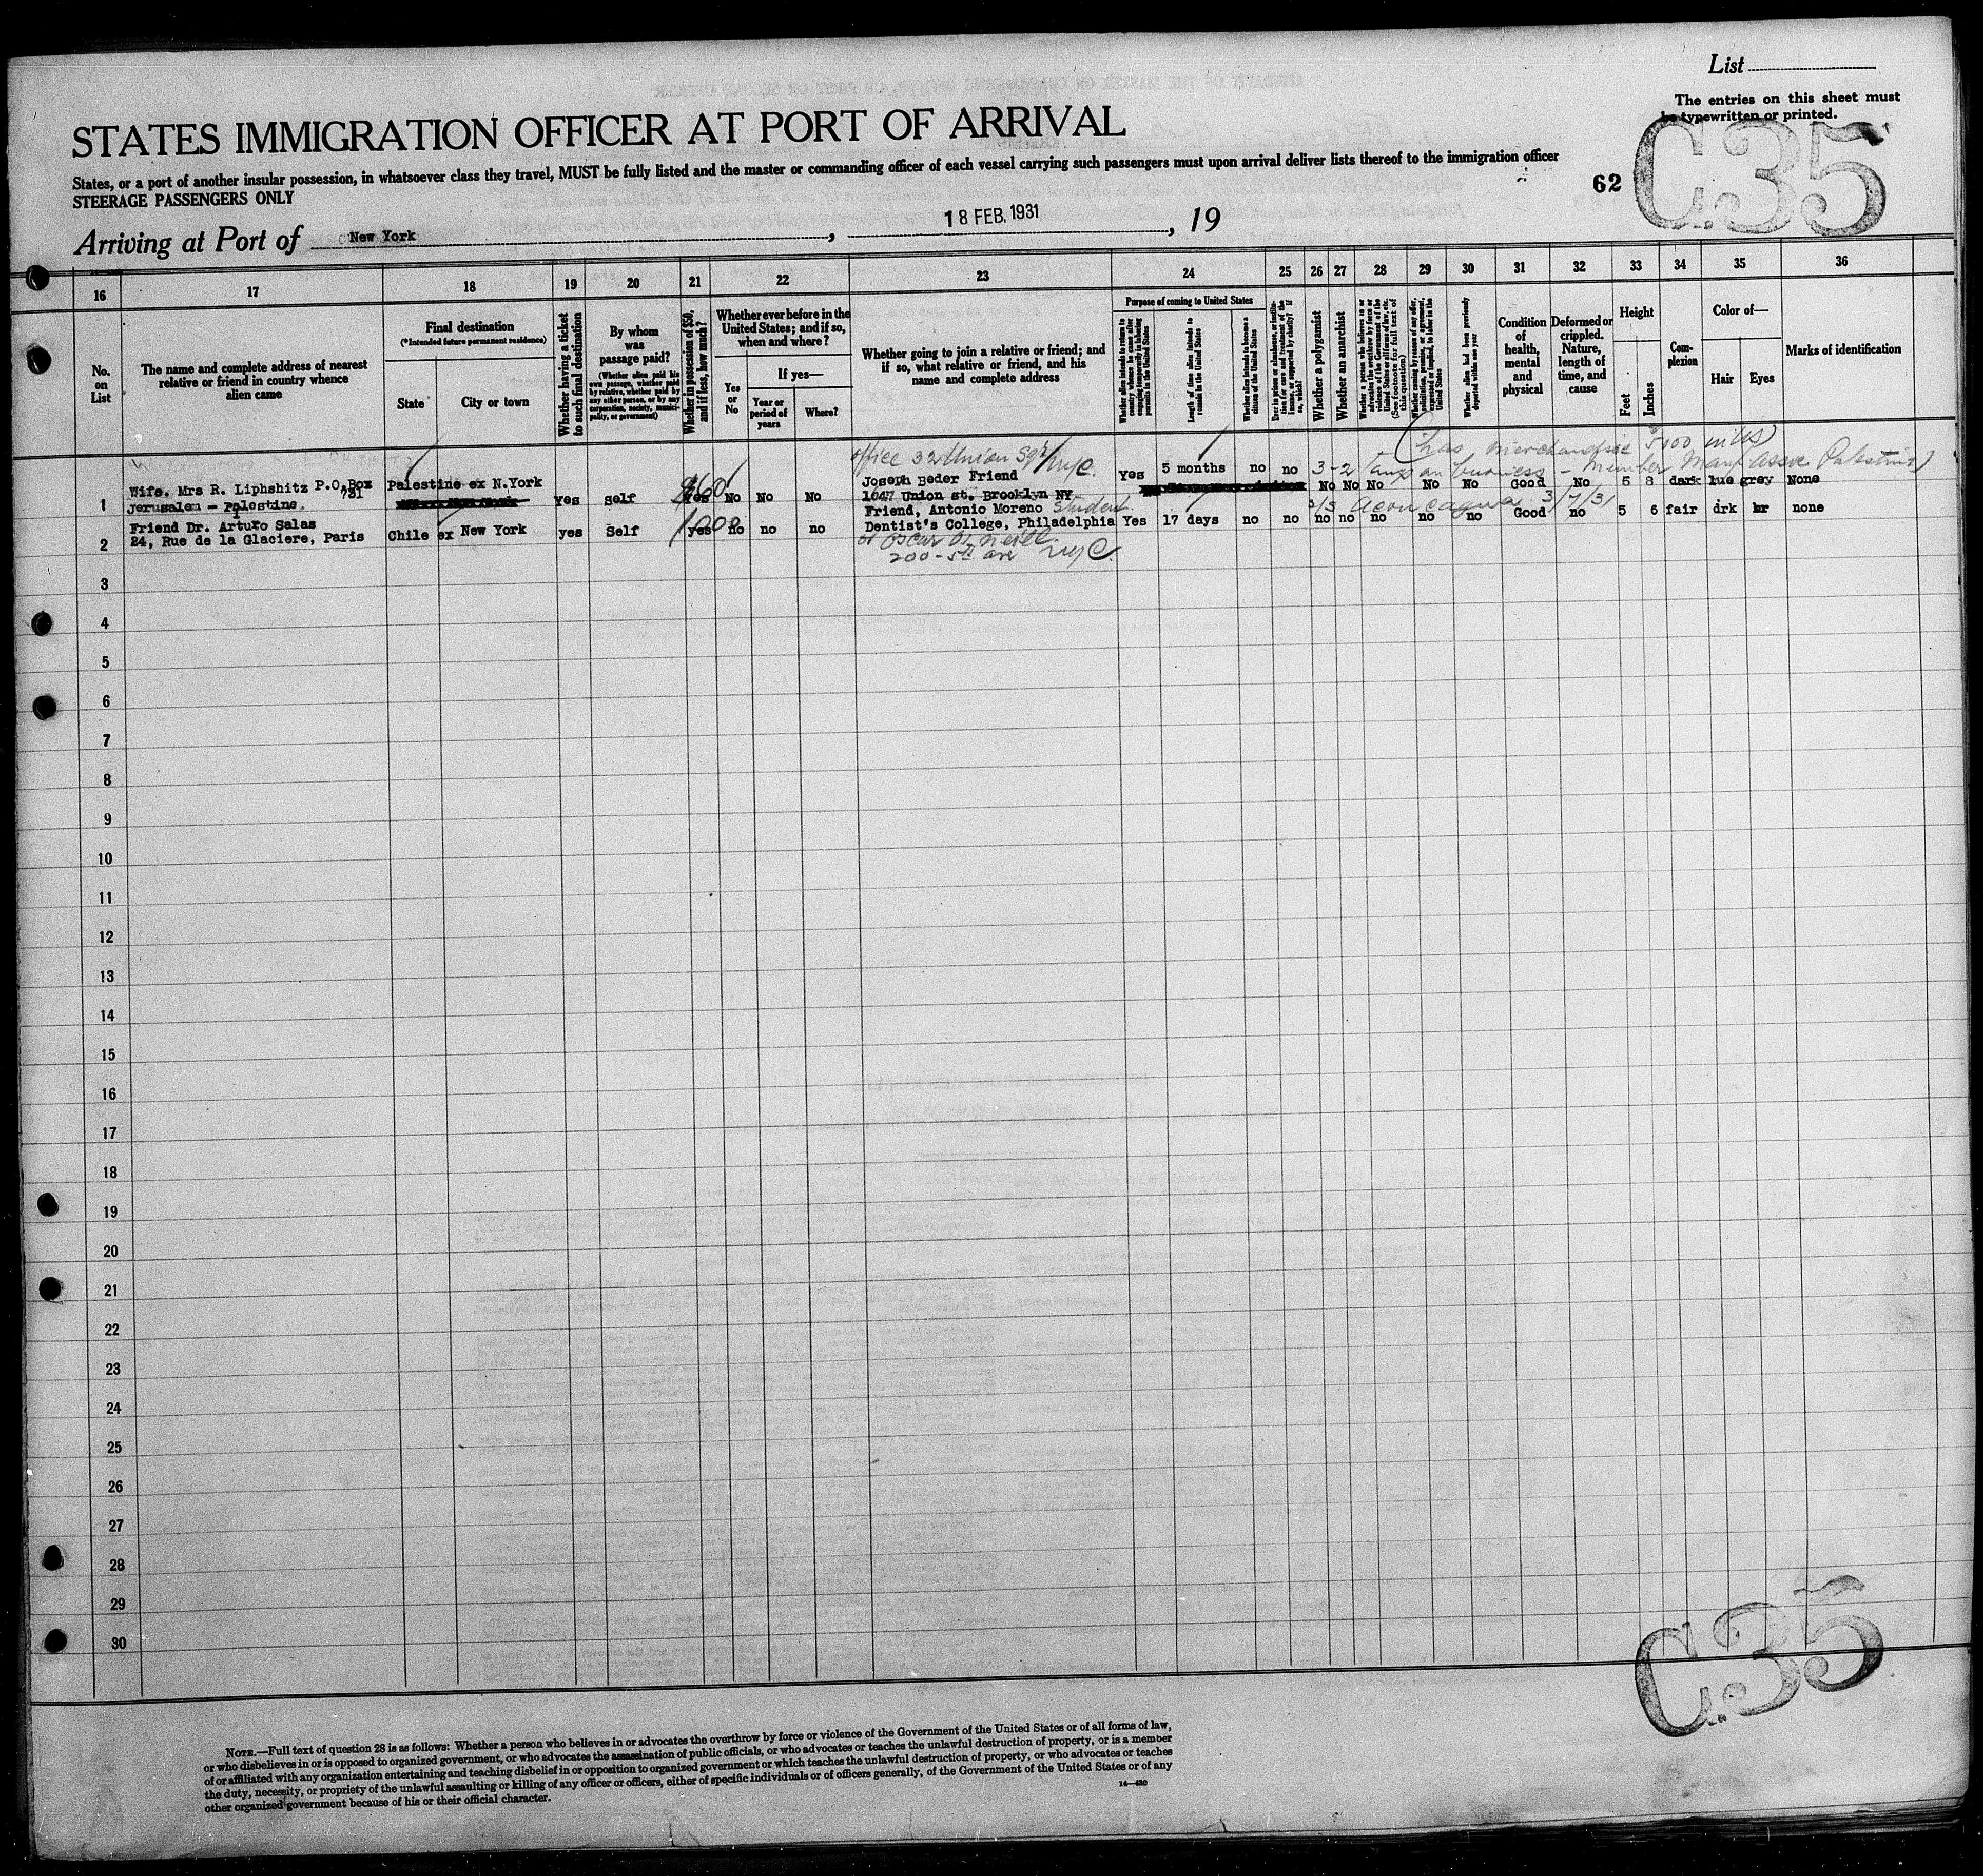 List
The entries on this sheet must
be typewritten or printed.
STATES IMMIGRATION OFFICER AT PORT OF ARRIVAL
C35
States, or a port of another insular possession, in whatsoever class they travel, MUST be fully listed and the master or commanding officer of each vessel carrying such passengers must upon arrival deliver lists thereof to the immigration officer
STEERAGE PASSENGERS ONLY
62
Arriving at Port of New York, 18 FEB. 1931, 19
16 17 18 19 20 21 22 23 24 25 26 27 28 29 30 31 32 33 34 35 36
No. on List
The name and complete address of nearest
relative or friend in country whence
alien came
Final destination
(*Intended future permanent residence)
State
City or town
Whether having a ticket
to such final destination
By whom
was
passage paid?
(Whether alien paid his
own passage, whether paid
by relative, whether paid by
any other person, or by any
corporation, society, munici-
pality, or government)
Whether in possession of $50,
and if less, how much?
Whether ever before in the
United States; and if so,
when and where?
Yes
or
No
If yes—
Year or
period of
years
Where?
Whether going to join a relative or friend; and
if so, what relative or friend, and his
name and complete address
Purpose of coming to United States
Whether alien intends to return to
country whence he came after
engaging temporarily in laboring
pursuits in the United States
Length of time alien intends to
remain in the United States
Whether alien intends to become a
citizen of the United States
Ever in prison or almshouse, or institu-
tion for care and treatment of the
insane, or supported by charity? If
so, which?
Whether a polygamist
Whether an anarchist
Whether a person who believes in or
advocates the overthrow by force or
violence of the Government of the
United States or all forms of law, etc.
(See footnote for full text of
this question)
Whether coming by reason of any offer,
solicitation, promise, or agreement,
expressed or implied, to labor in the
United States
Whether alien had been previously
deported within one year
Condition
of
health,
mental
and
physical
Deformed or
crippled.
Nature,
length of
time, and
cause
Height
Feet
Inches
Com-
plexion
Color of—
Hair
Eyes
Marks of identification
office 32 Union Sqr NYC.
(has merchandise 5000 mills)
business - member Manf assoc Palestine)
1 Wife. Mrs R. Liphshitz P.O.Box 781
Jerusalem - Palestine.
Palestine ex N.York
yes self yes 360 No No No
Joseph Beder Friend
1647 Union st. Brooklyn NY
Yes 5 months no no 3-2 No No No No No Good No 5 8 dark lue grey None
2 Friend Dr. Arturo Salas
24, Rue de la Glaciere, Paris
Chile ex New York yes Self yes 1000 no no no
Friend, Antonio Moreno Student
Dentist's College, Philadelphia
or Oscar O. Neill
200 - 5th ave NYC.
Yes 17 days no no no no no no no Good no 5 6 fair drk br none
3/3 Aconcagua 3/7/31
3
4
5
6
7
8
9
10
11
12
13
14
15
16
17
18
19
20
21
22
23
24
25
26
27
28
29
30
C35
NOTE.—Full text of question 28 is as follows: Whether a person who believes in or advocates the overthrow by force or violence of the Government of the United States or of all forms of law,
or who disbelieves in or is opposed to organized government, or who advocates the assassination of public officials, or who advocates or teaches the unlawful destruction of property, or is a member
of or affiliated with any organization entertaining and teaching disbelief in or opposition to organized government or which teaches the unlawful destruction of property, or who advocates or teaches
the duty, necessity, or propriety of the unlawful assaulting or killing of any officer or officers, either of specific individuals or of officers generally, of the Government of the United States or of any
other organized government because of his or their official character.
14—430